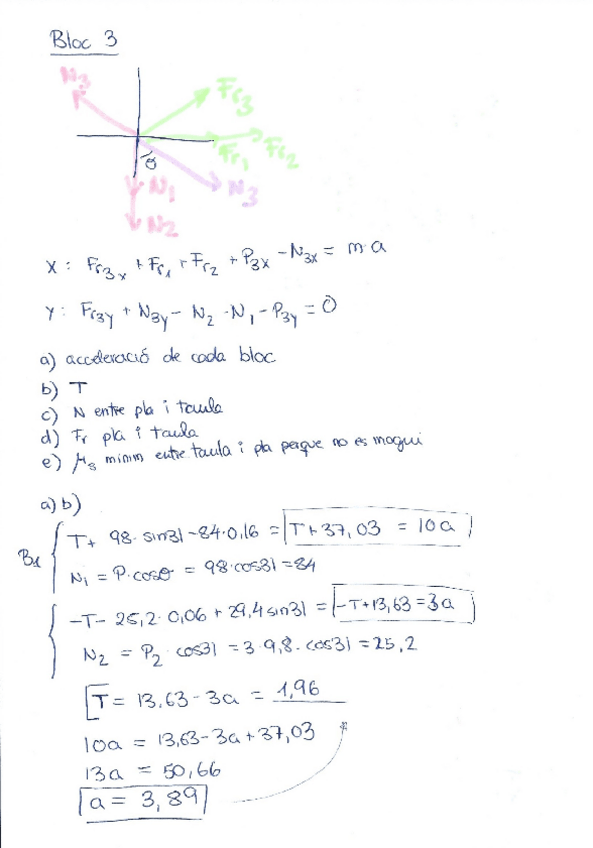 Bloc 3
N3
Fr3
Fr1
Fr2
θ
N1
N3
N2
X: Fr3x + Fr1 + Fr2 + P3x - N3x = m·a
Y: Fr3y + N3y - N2 - N1 - P3y = 0
a) acceleració de cada bloc
b) T
c) N entre pla i taula
d) Fr pla i taula
e) μs minim entre taula i pla perque no es mogui
a) b)
B1
T + 98·sin31 - 84·0,16 = T + 37,03 = 10a
N1 = P·cosθ = 98·cos31 = 84
-T - 25,2·0,06 + 29,4 sin31 = -T + 13,63 = 3a
N2 = P2·cos31 = 3·9,8·cos31 = 25,2
T = 13,63 - 3a = 1,96
10a = 13,63 - 3a + 37,03
13a = 50,66
a = 3,89